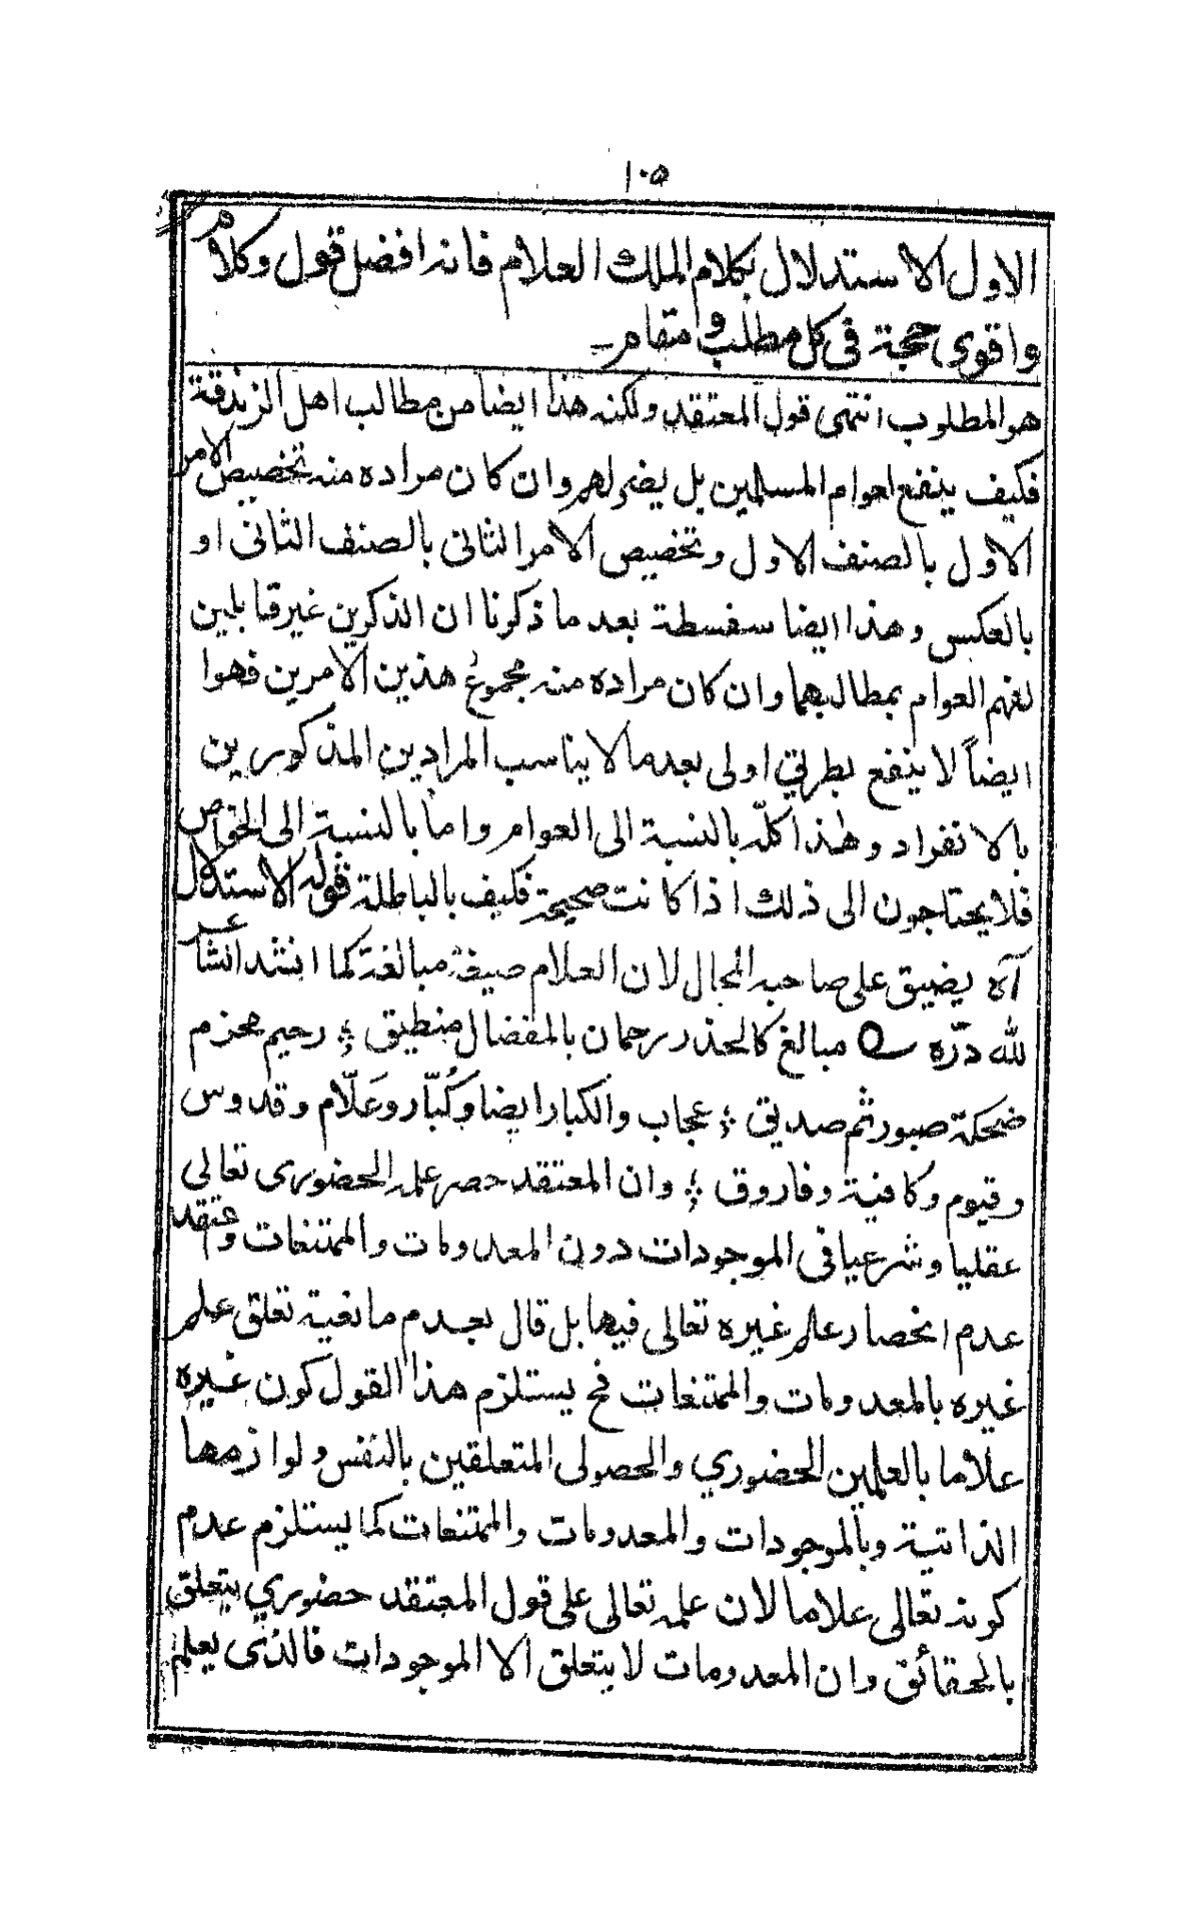 ١٠٥
الاول الاستدلال بكلام الملك العلام فانه افضل قول وكلام
واقوى حجة فى كل مطلب ومقام
هو المطلوب انتهى قول المعتقد ولكنه هذا ايضا من مطالب اهل الزندقة
فكيف ينفع لعوام المسلمين بل يضر لهم وان كان مراده منه تخصيص الامر
الاول بالصنف الاول وتخصيص الامر الثانى بالصنف الثانى او
بالعكس وهذا ايضا سفسطة بعد ما ذكرنا ان الذكرين غير قابلين
لفهم العوام بمطالبهما وان كان مراده منه مجموع هذين الامرين فهوا
ايضاً لا ينفع بطريق اولى بعد ما لا يناسب المرادين المذكورين
بالانفراد وهذا كلّه بالنسبة الى العوام واما بالنسبة الى الخواص
فلا يحتاجون الى ذلك اذا كانت صحيحة فكيف بالباطلة قوله الاستدلال
آه يضيق على صاحبه المجال لان العلام صيغة مبالغة كما انشد انشا عر
لله درّه مبالغ كالحذر رحمان بالمفضال منطيق ؛ رحيم محزم
ضحكة صبور ثم صديق ؛ عجاب والكبار ايضا وكُبّار وعَلّام وقدوس
وقيوم وكافية وفاروق ؛ وان المعتقد حصر علمه الحضورى تعالى
عقليا وشرعيا فى الموجودات دون المعدومات والممتنعات ومعتقد
عدم انحصار علم غيره تعالى فيها بل قال بعدم مانعية تعلق علم
غيره بالمعدومات والممتنعات فح يستلزم هذا القول كون غيره
علاما بالعلمين الحضوري والحصولى المتعلقين بالنفس ولوازمها
الذاتية وبالموجودات والمعدومات والممتنعات كما يستلزم عدم
كونه تعالى علاما لان علمه تعالى على قول المعتقد حضوري يتعلق
بالحقائق وان المعدومات لا يتعلق الا الموجودات فالذى يعلم